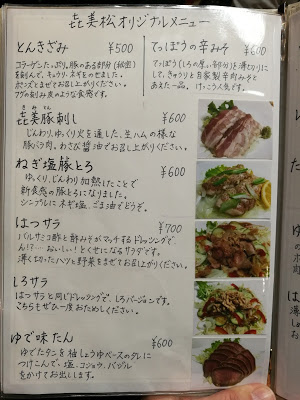 㐂美松オリジナルメニュー
とんきざみ ¥500
コラーゲンたっぷり、豚のある部分(秘密)
を刻んで、キュウリ、ネギをのせました。
ポン酢とまぜてお召し上がりください。
フグの刻み皮のような食感です。
てっぽうの辛みそ ¥600
てっぽう(しろの厚い部分)を薄切りに
して、きゅうりと自家製辛肉みそと
あえた一品。けっこう人気です。
きみとん
㐂美豚刺し ¥600
じんわり、ゆっくり火を通した、生ハムの様な
豚バラ肉。わさび醤油でお召し上がりください。
ねぎ塩豚とろ ¥600
ゆっくり、じんわり加熱したことで
新食感の豚とろになりました。
シンプルにネギ塩、ごま油でどうぞ。
はつサラ ¥700
バルサミコ酢と酢みそがマッチするドレッシングで
ん!?…おいしい!とくせになるサラダです。
薄く切ったハツと野菜をまぜてお召し上がりください。
しろサラ
はつサラと同じドレッシングで、しろバージョンです。
こちらもぜひ一度おためしください。
ゆで味たん ¥600
ゆでたタンを柚しょうゆベースのタレに
つけこんで、塩、コショウ、バジル
をかけてお出しします。